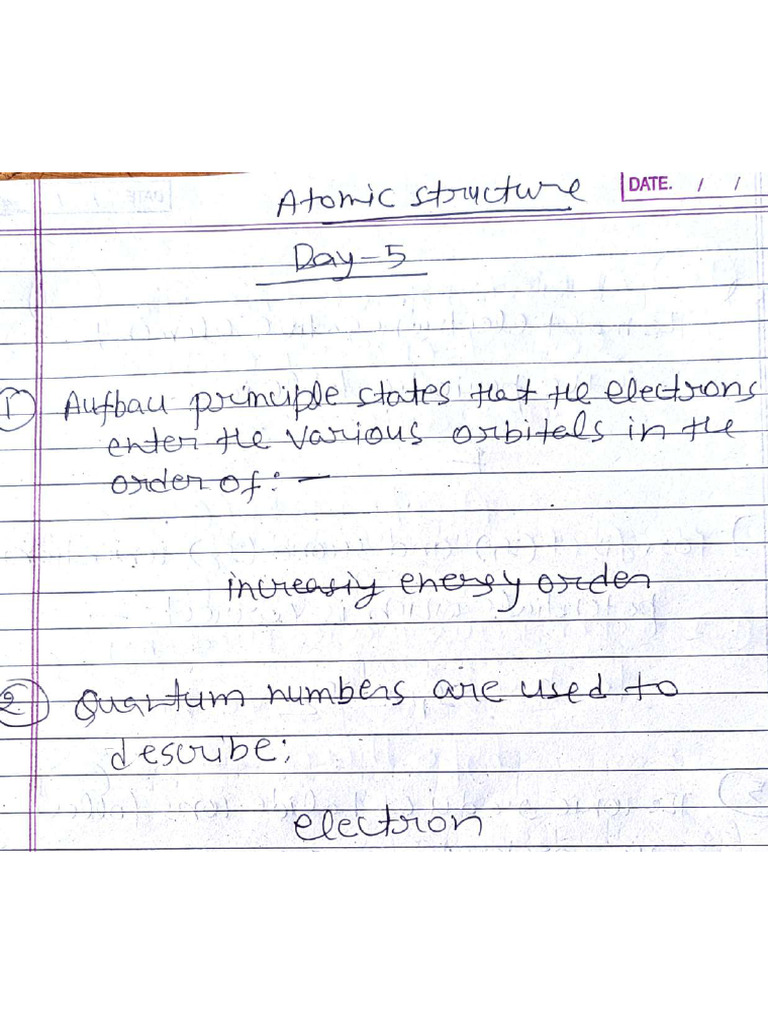 Atomic structure
DATE. / /
Day-5
1 Aufbau principle states that the electrons
enter the various orbitals in the
order of: —
increasiy energy order
2. Quantum numbers are used to
describe:
electron